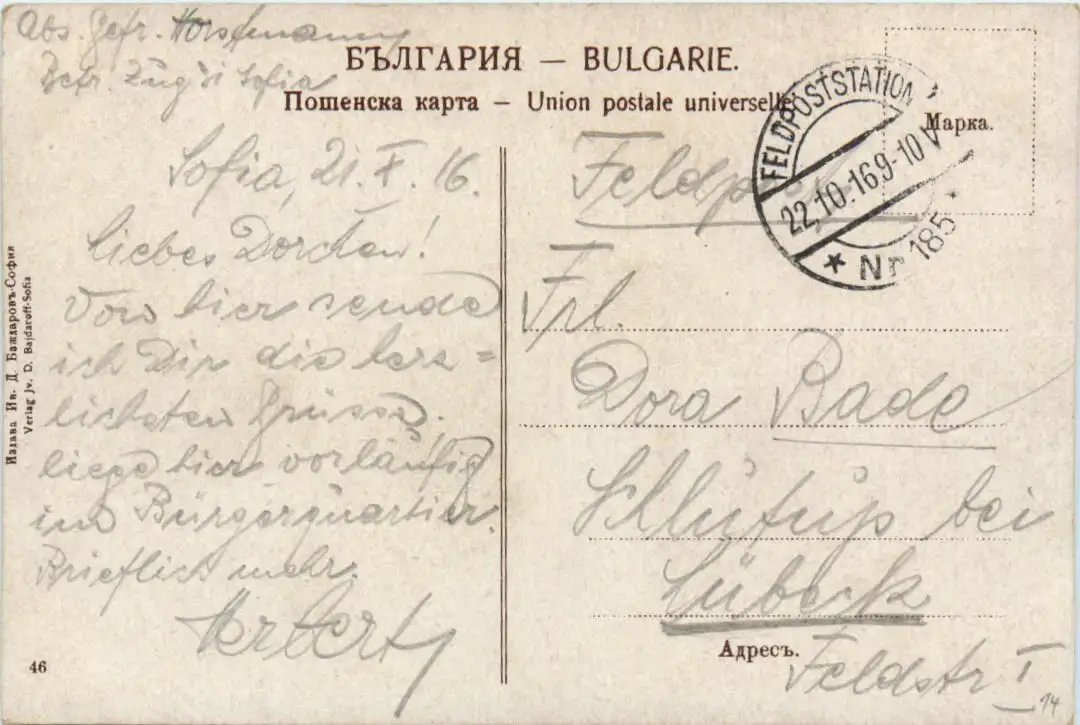 Abs. Gefr. Horstmann
Betr. Zug 51 Sofia
БЪЛГАРИЯ — BULGARIE.
Пошенска карта — Union postale universelle.
Марка.
FELDPOSTSTATION
22.10.16 9-10 V
* Nr 185 *
Sofia, 21. X. 16.
Liebes Dorchen!
Von hier sende
ich Dir die herz=
lichsten Grüsse.
liege hier vorläufig
im Bürgerquartier.
Brieflich mehr.
Herbert
Feldpost
Frl.
Dora Bade
Schlutup bei
Lübeck
Адресъ.
Feldstr I
14
Издава Ив. Д. Баждаровъ-София
Verlag Jv. D. Bajdaroff-Sofia
46